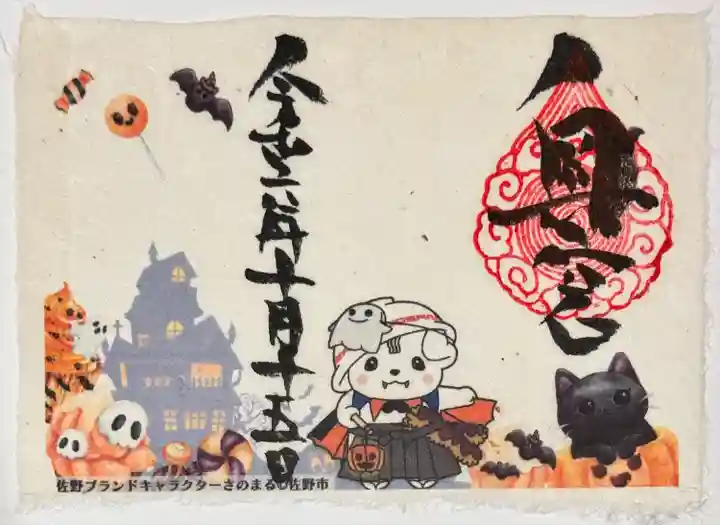 令和六年十月十五日
佐野ブランドキャラクターさのまる©佐野市